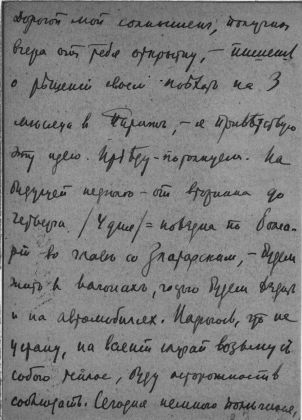 Дорогой мой солнышек, получил
вчера от тебя открытку, – пишешь
о решении своем поехать на 3
месяца в Париж, – я приветствую
эту идею. Приеду – потолкуем. На
будущей неделе – от вторника до
четверга /4 дня/ = поездка по
во главе со Златарским, – будем
жить в вагонах, будем
и на автомобилях. что не
на всякий случай возьму с
собою теплое, буду осторожность
соблюдать. Сегодня немного